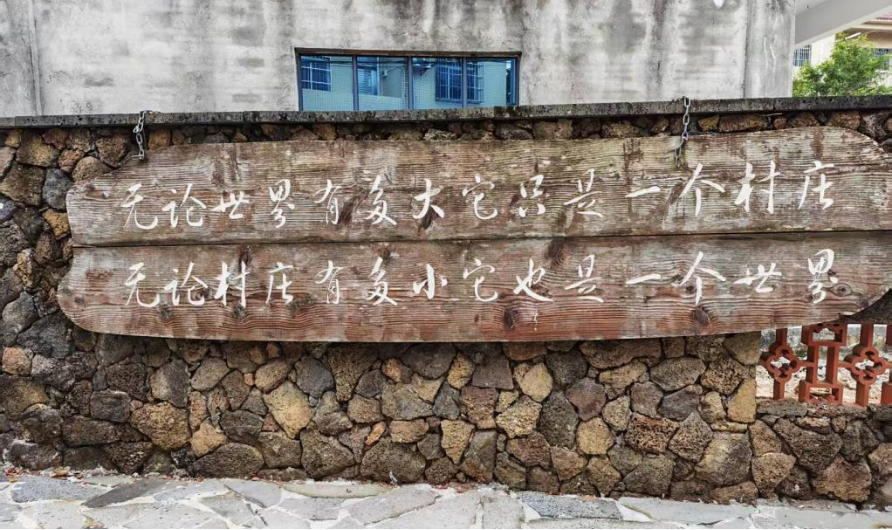 无论世界有多大它只是一个村庄
无论村庄有多小它也是一个世界